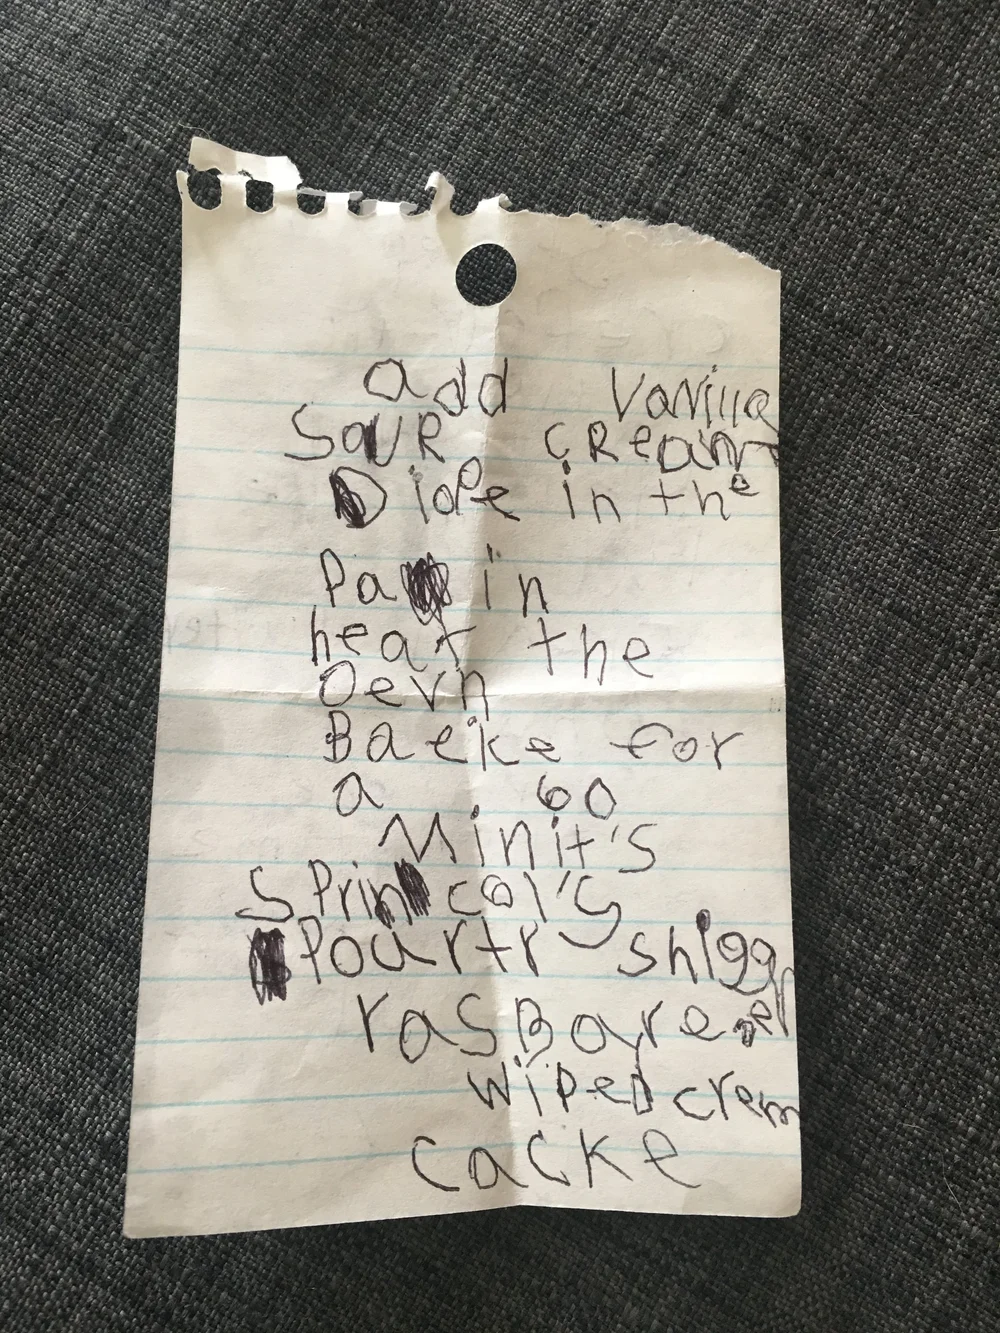 add Vanilla
Saur cream
Diope in the
Pa in
heat the
Oevn
Baeke for
a 60
Minit's
SPrincol's
Pourtr shigg
rasBare
wiped crem
cacke